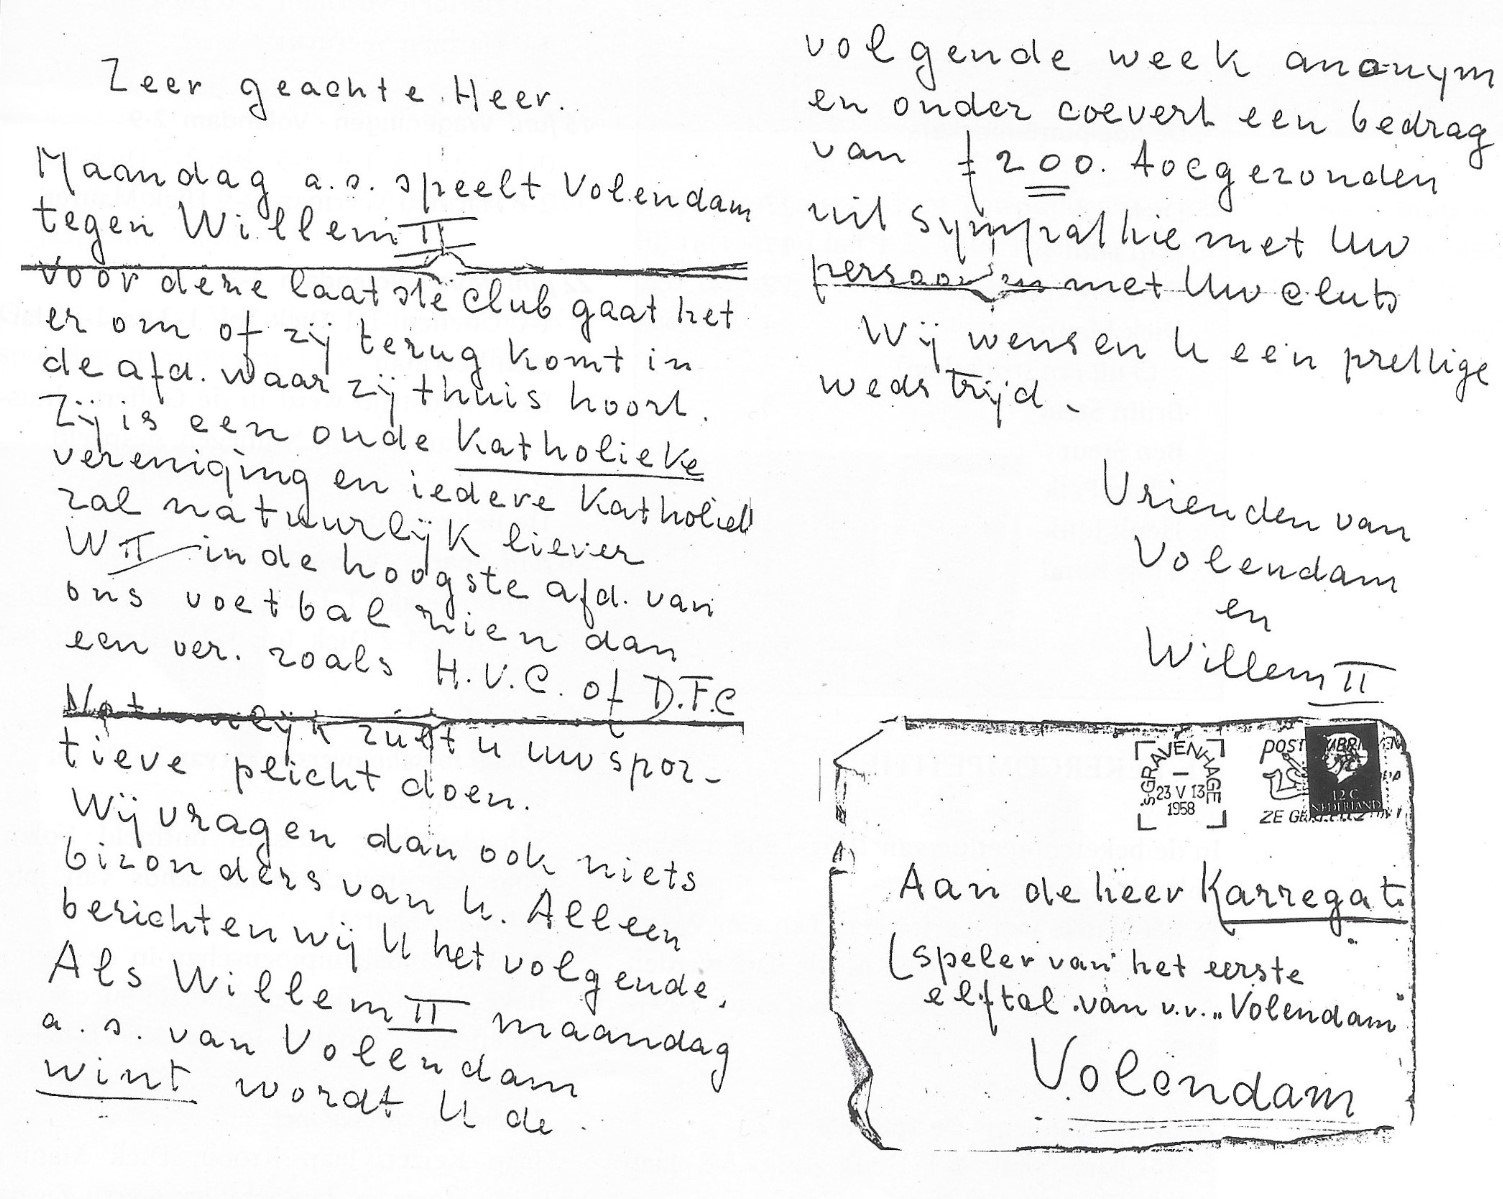 Zeer geachte Heer.
Maandag a.s. speelt Volendam
tegen Willem II
voor deze laatste club gaat het
er om of zij terug komt in
de afd. waar zij thuis hoort.
Zij is een oude Katholieke
vereniging en iedere Katholiek
zal natuurlijk liever
W II in de hoogste afd. van
ons voetbal zien dan
een ver. zoals H.V.C. of D.F.C
Natuurlijk zult u uw spor-
tieve plicht doen.
Wij vragen dan ook niets
bizonders van U. Alleen
berichten wij U het volgende.
Als Willem II maandag
a.s. van Volendam
wint wordt U de
volgende week anonym
en onder coevert een bedrag
van ƒ 200. toegezonden
uit sympathie met Uw
persoon en met Uw club
Wij wensen U een prettige
wedstrijd.
Vrienden van
Volendam
en
Willem II
's-GRAVENHAGE
23 V 13
1958
POSTRUBRIEKEN
ZE
12 C
NEDERLAND
Aan de heer Karregat.
(speler van het eerste
elftal van v.v. „Volendam"
Volendam